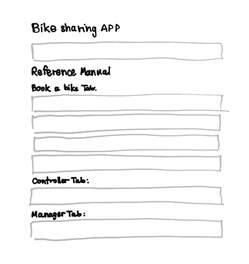 Bike sharing APP
Reference Manual
Book a bike Tab.
Controller Tab:
Manager Tab: